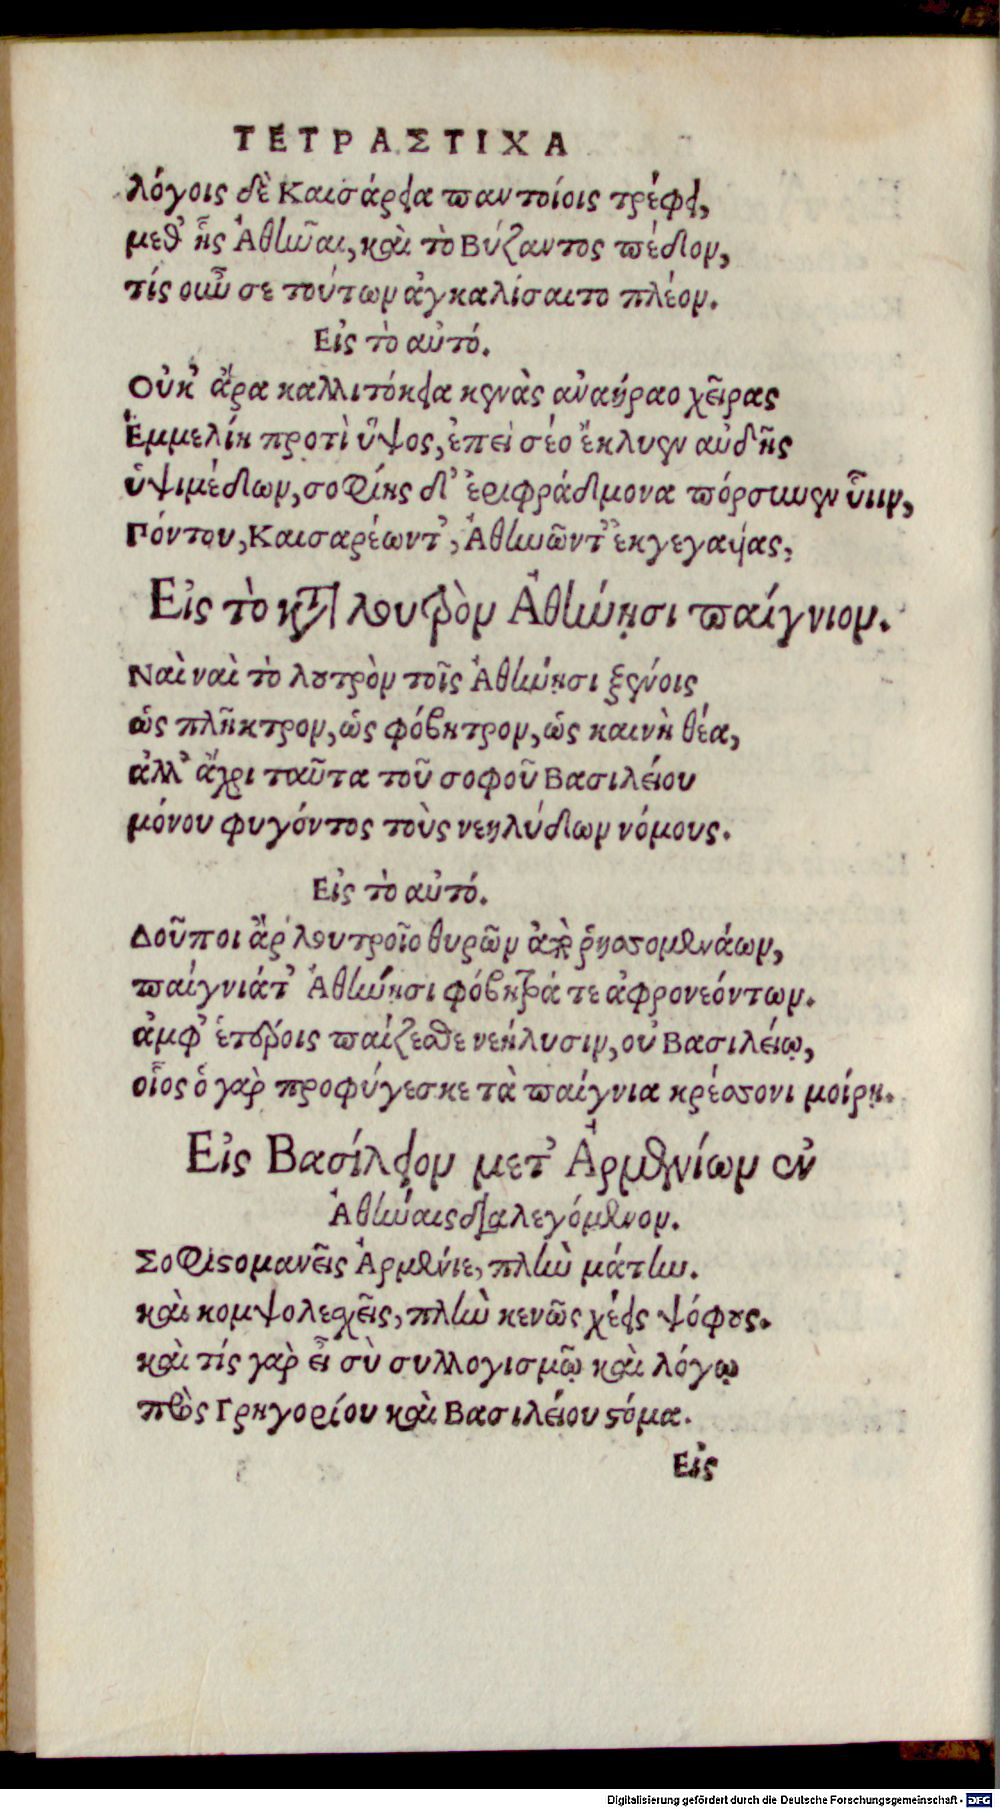 ΤΕΤΡΑΣΤΙΧΑ
λόγοις δὲ Καισάρεια παντοίοις τρέφει,
μεθ' ἧς Ἀθῆναι, καὶ τὸ Βύζαντος πέδιον,
τίς οὖν σε τούτων ἀγκαλίσαιτο πλέον.
Εἰς τὸ αὐτό.
Οὐκ ἄρα καλλιτόκεια κενὰς ἀναήραο χεῖρας
Ἐμμελίη προτὶ ὕψος, ἐπεὶ σέο ἔκλυεν αὐδῆς
ὑψιμέδων, σοφίης δ' ἐριφράδμονα πόρσυνεν υἷιν,
Πόντου, Καισαρέωντ', Ἀθηνῶντ' ἐκγεγαῖας.
Εἰς τὸ κατὰ λουτρὸν Ἀθήνησι παίγνιον.
Ναὶ ναὶ τὸ λουτρὸν τοῖς Ἀθήνησι ξένοις
ὡς πλῆκτρον, ὡς φόβητρον, ὡς καινὴ θέα,
ἀλλ' ἄχρι ταῦτα τοῦ σοφοῦ Βασιλείου
μόνου φυγόντος τοὺς νεηλύδων νόμους.
Εἰς τὸ αὐτό.
Δοῦποι ἂρ λουτροῖο θυρῶν ἀπὸ ῥησσομενάων,
παίγνιάτ' Ἀθήνησι φόβητρά τε ἀφρονεόντων.
ἀμφ' ἑτέροις παίζεσθε νεήλυσιν, οὐ Βασιλείῳ,
οἷος ὁ γὰρ προφύγεσκε τὰ παίγνια κρέσσονι μοίρῃ.
Εἰς Βασίλειον μετ' Ἀρμενίων ἐν
Ἀθήναις διαλεγόμενον.
Σοφιστομανεῖς Ἀρμένιε, πλὴν μάτην.
καὶ κομψολεσχεῖς, πλὴν κενῶς χέεις ψόφους.
καὶ τίς γὰρ εἶ σὺ συλλογισμῷ καὶ λόγῳ
πρὸς Γρηγορίου καὶ Βασιλείου στόμα.
Εἰς
Digitalisierung gefördert durch die Deutsche Forschungsgemeinschaft - DFG